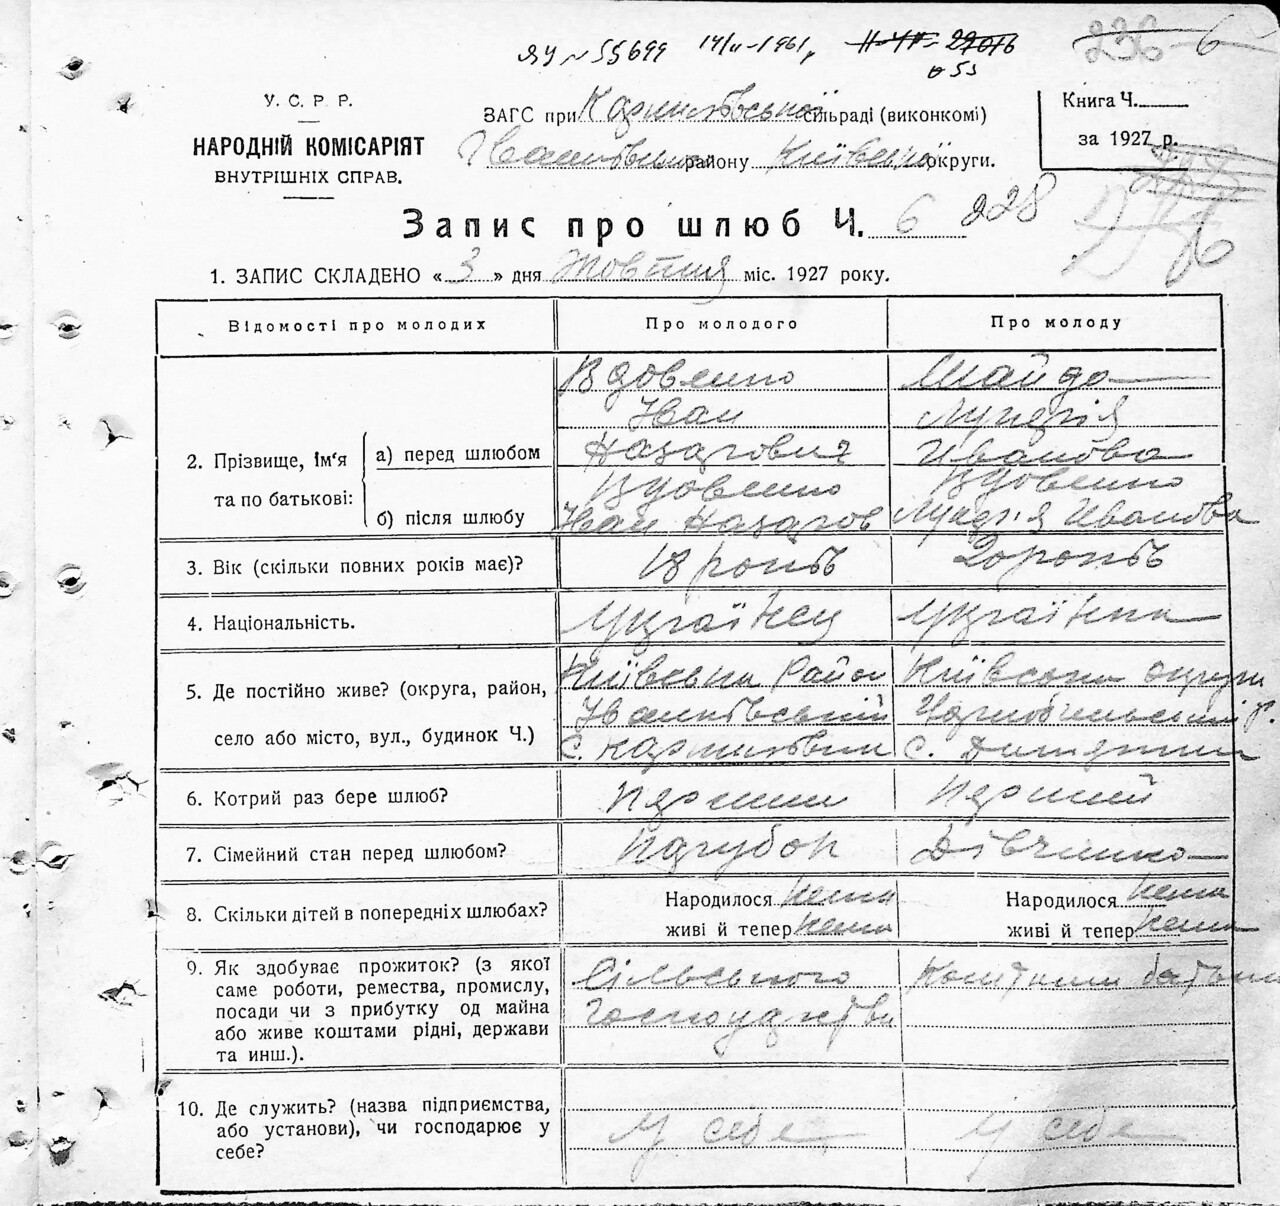 ЯУ № 55699 14/II-1961 р.
236 6
У. С. Р. Р.
НАРОДНІЙ КОМІСАРІЯТ
ВНУТРІШНІХ СПРАВ.
ЗАГС при сільраді (виконкомі)
району Київської округи.
Книга Ч.
за 1927 р.
Запис про шлюб Ч. 6 228
1. ЗАПИС СКЛАДЕНО « 3 » дня Жовтня міс. 1927 року.
Відомості про молодих
Про молодого
Про молоду
2. Прізвище, ім'я
та по батькові:
а) перед шлюбом
б) після шлюбу
Вдовенко
Іван
Назарович
Вдовенко
Іван Назаров
Шайдо
Лукерія
Иванова
Вдовенко
Лукерія Иванова
3. Вік (скільки повних років має)?
18 рокїв
20 рокїв
4. Національність.
Українец
Українка
5. Де постійно живе? (округа, район,
село або місто, вул., будинок Ч.)
Київська Район
Іванківський
с.
Київська округа
р.
с.
6. Котрий раз бере шлюб?
Перший
7. Сімейний стан перед шлюбом?
Парубок
Дівчинка
8. Скільки дітей в попередніх шлюбах?
Народилося нема
живі й тепер нема
Народилося нема
живі й тепер нема
9. Як здобуває прожиток? (з якої
саме роботи, ремества, промислу,
посади чи з прибутку од майна
або живе коштами рідні, держави
та инш.).
Сільського
Господарства
10. Де служить? (назва підприємства,
або установи), чи господарює у
себе?
У себе
У себе